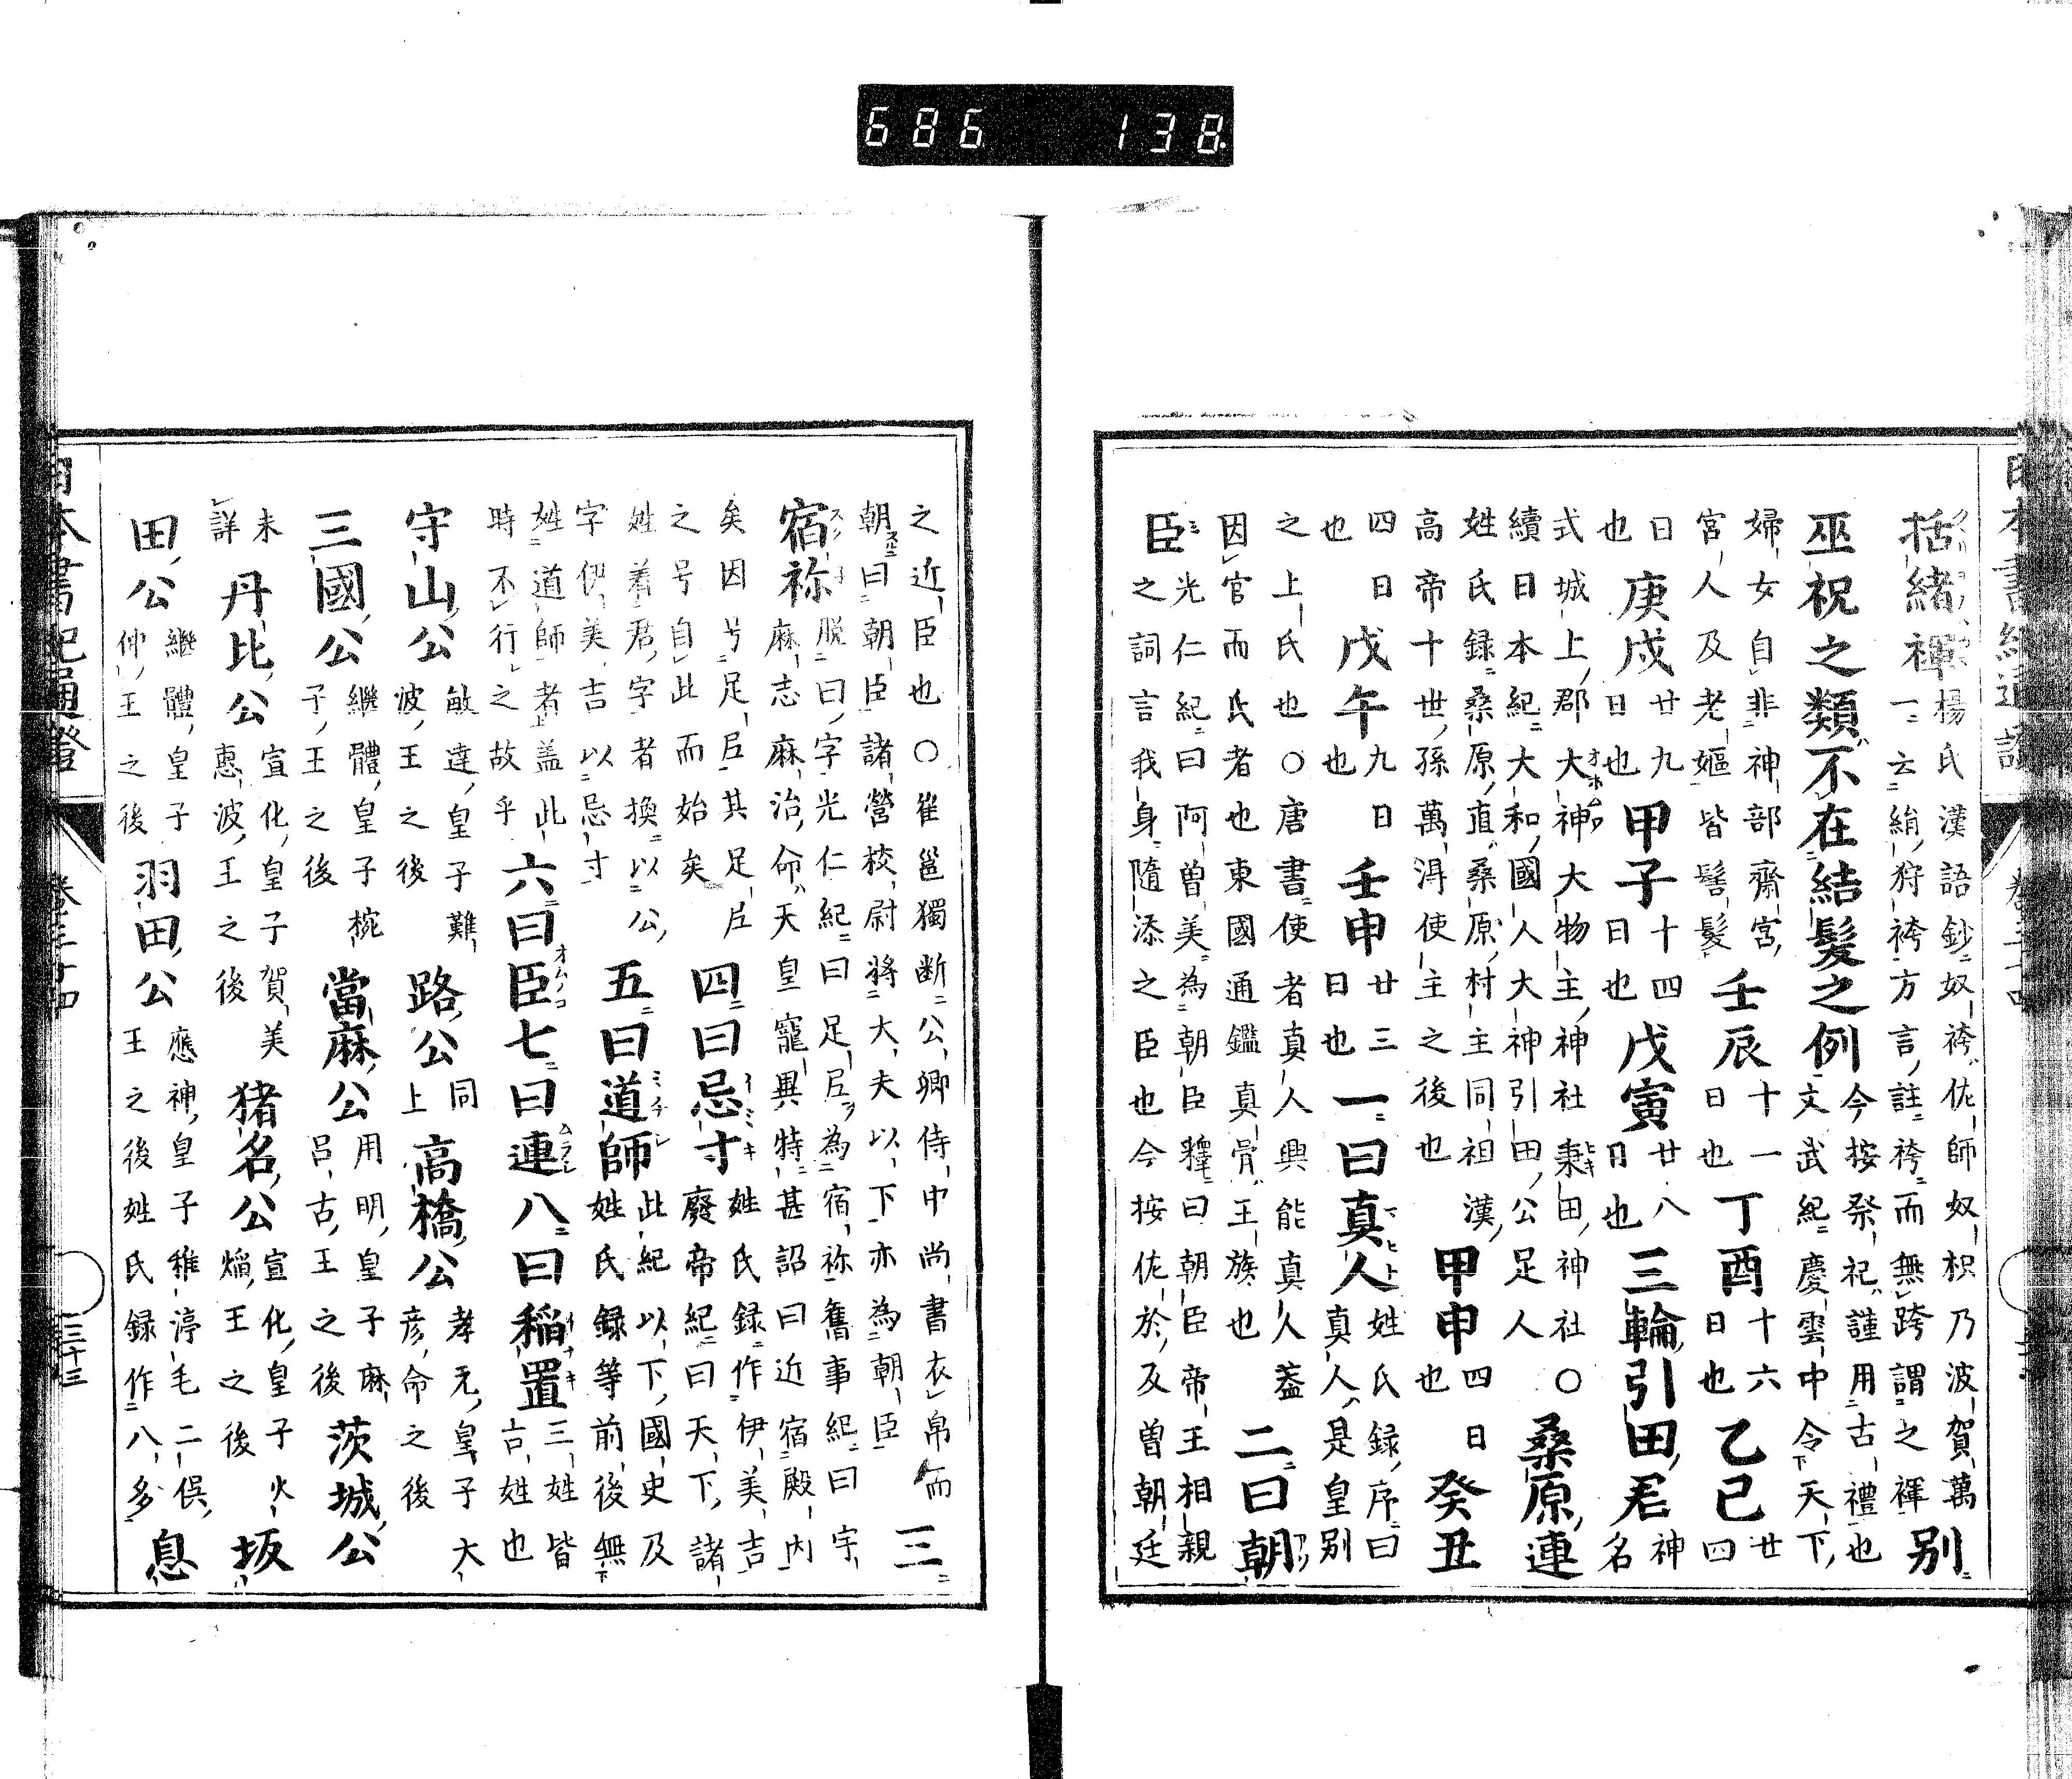 括緒褌楊氏漢語鈔奴袴佐師奴枳乃波賀萬一云絹狩袴方言註袴而無跨謂之褌別
巫祝之類不在結髮之例今按祭祀謹用古禮也文武紀慶雲中令天下
婦女自非神部齋宮宮人及老嫗皆髻髮壬辰十一日也丁酉十六日也乙巳廿四
日也庚戌廿九日也甲子十四日也戊寅廿八日也三輪引田君神名
式城上郡大神大物主神社秉田神社〇續日本紀大和國人大神引田公足人桑原連
姓氏録桑原直桑原村主同祖漢高帝十世孫萬淂使主之後也甲申四日也癸丑
四日也戊午九日也壬申廿三日也一曰真人姓氏録序曰真人是皇別
之上氏也〇唐書使者真人興能真人葢因官而氏者也東國通鑑真骨王族也二曰朝
臣光仁紀曰阿曽美為朝臣釋曰朝臣帝王相親之詞言我身隨添之臣也今按佐於及曽朝廷
之近臣也〇崔邕獨断公卿侍中尚書衣帛而朝曰朝臣諸營校尉將大夫以下亦為朝臣三
宿祢脱曰字光仁紀曰足尼為宿祢舊事紀曰宇麻志麻治命天皇寵異特甚詔曰近宿殿内
矣因号足尼其足尼之号自此而始矣四曰忌寸姓氏録作伊美吉廢帝紀曰天下諸
姓着君字者換以公字伊美吉以忌寸五曰道師此紀以下國史及姓氏録等前後無
姓道師者蓋此時不行之故乎六曰臣七曰連八曰稲置三姓皆古姓也
守山公敏達皇子難波王之後路公同上高橋公孝元皇子大彦命之後
三國公繼體皇子椀子王之後當麻公用明皇子麻呂古王之後茨城公
未詳丹比公宣化皇子賀美惠波王之後猪名公宣化皇子火焔王之後坂
田公繼體皇子仲王之後羽田公應神皇子稚渟毛二俣王之後姓氏録作八多息
日本書紀通證
卷三十四
三十三
686 138